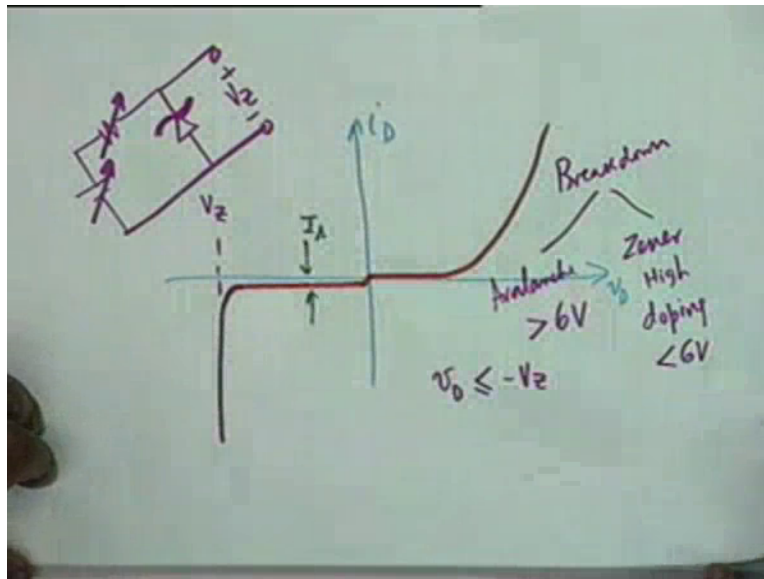 +
Vz
-
Vz
i_D
I_s
v_D
Breakdown
Avalanche
>6V
Zener
High
doping
<6V
v_D ≤ -Vz